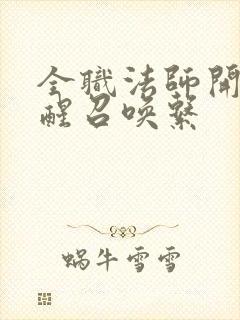 全職法師開
醒召喚繫
蝸牛雪雪